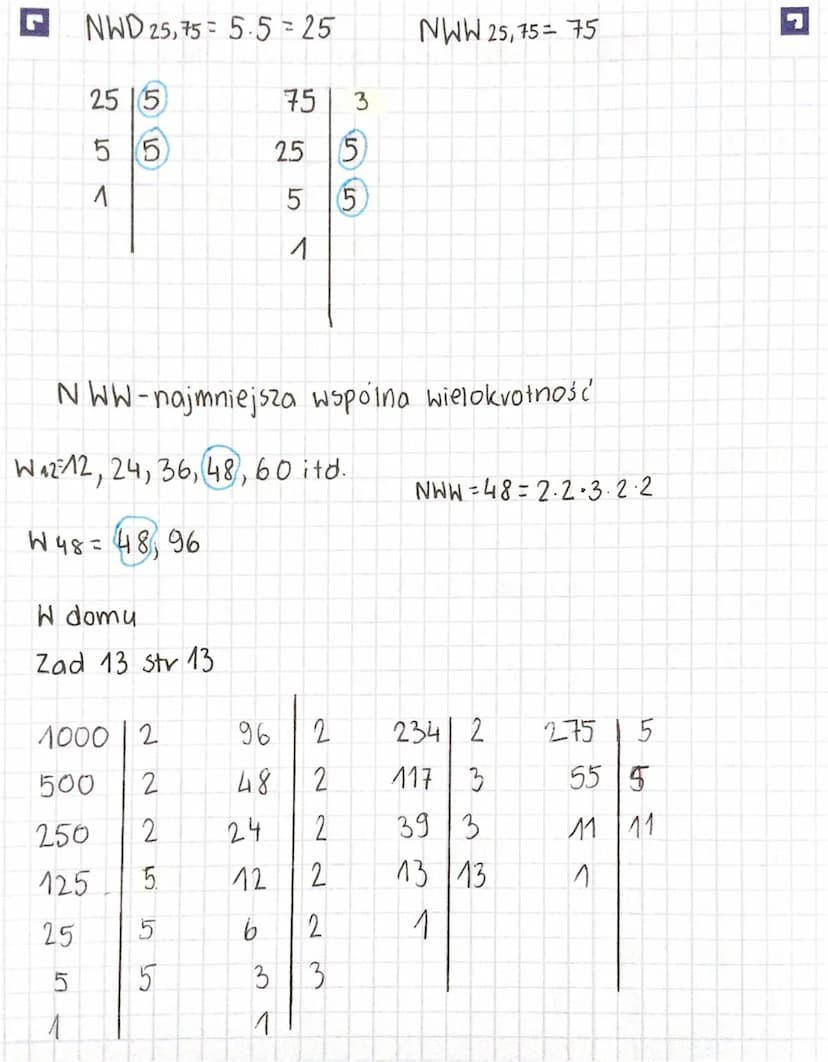 NWD 25,75 = 5·5 = 25 NWW 25,75 = 75
25 | 5 75 | 3
5 | 5 25 | 5
1 5 | 5
1
NWW - najmniejsza wspólna wielokrotność
W12=12, 24, 36, 48, 60 itd.
NWW = 48 = 2·2·3·2·2
W48 = 48, 96
W domu
Zad 13 str 13
1000 | 2 96 | 2 234 | 2 275 | 5
500 | 2 48 | 2 117 | 3 55 | 5
250 | 2 24 | 2 39 | 3 11 | 11
125 | 5 12 | 2 13 | 13 1
25 | 5 6 | 2 1
5 | 5 3 | 3
1 1